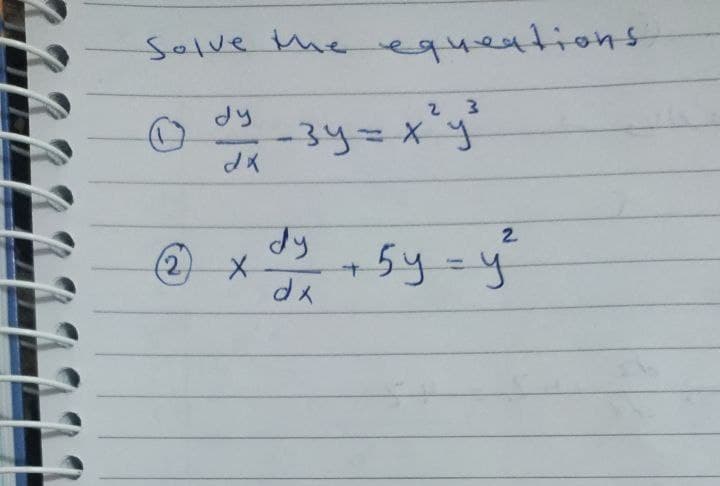 Solve the equeations
① dy/dx - 3y = x²y³
② x dy/dx + 5y = y²